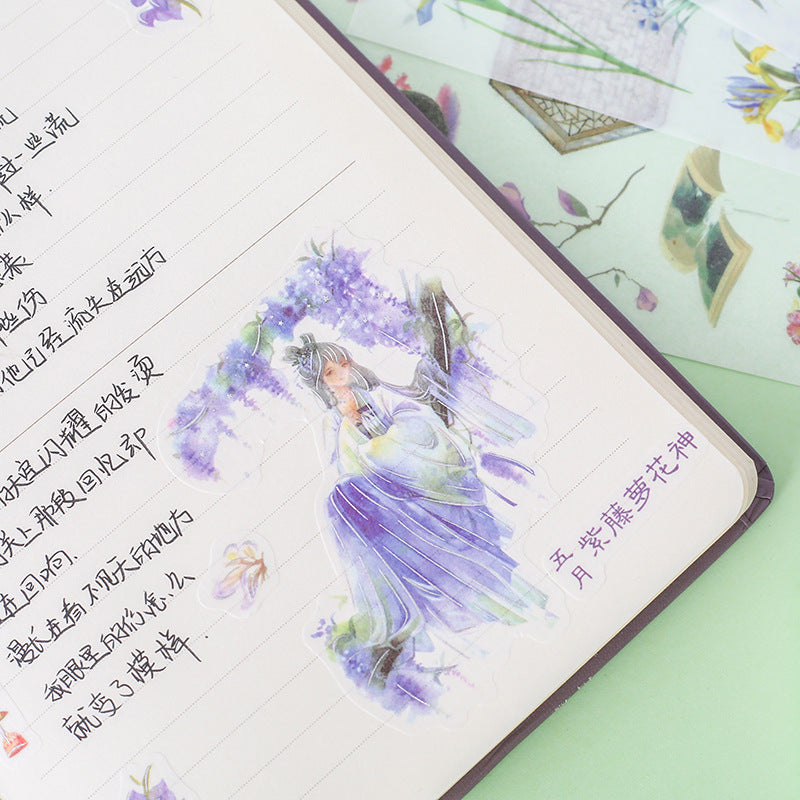 流
一些流
么样
些伤
他已经流失在远方
天空闪耀的发烫
关上那段回忆却
在回响.
漫长在看不见天的地方
我眼里的你怎么
就变了模样.
五月
紫藤萝花神